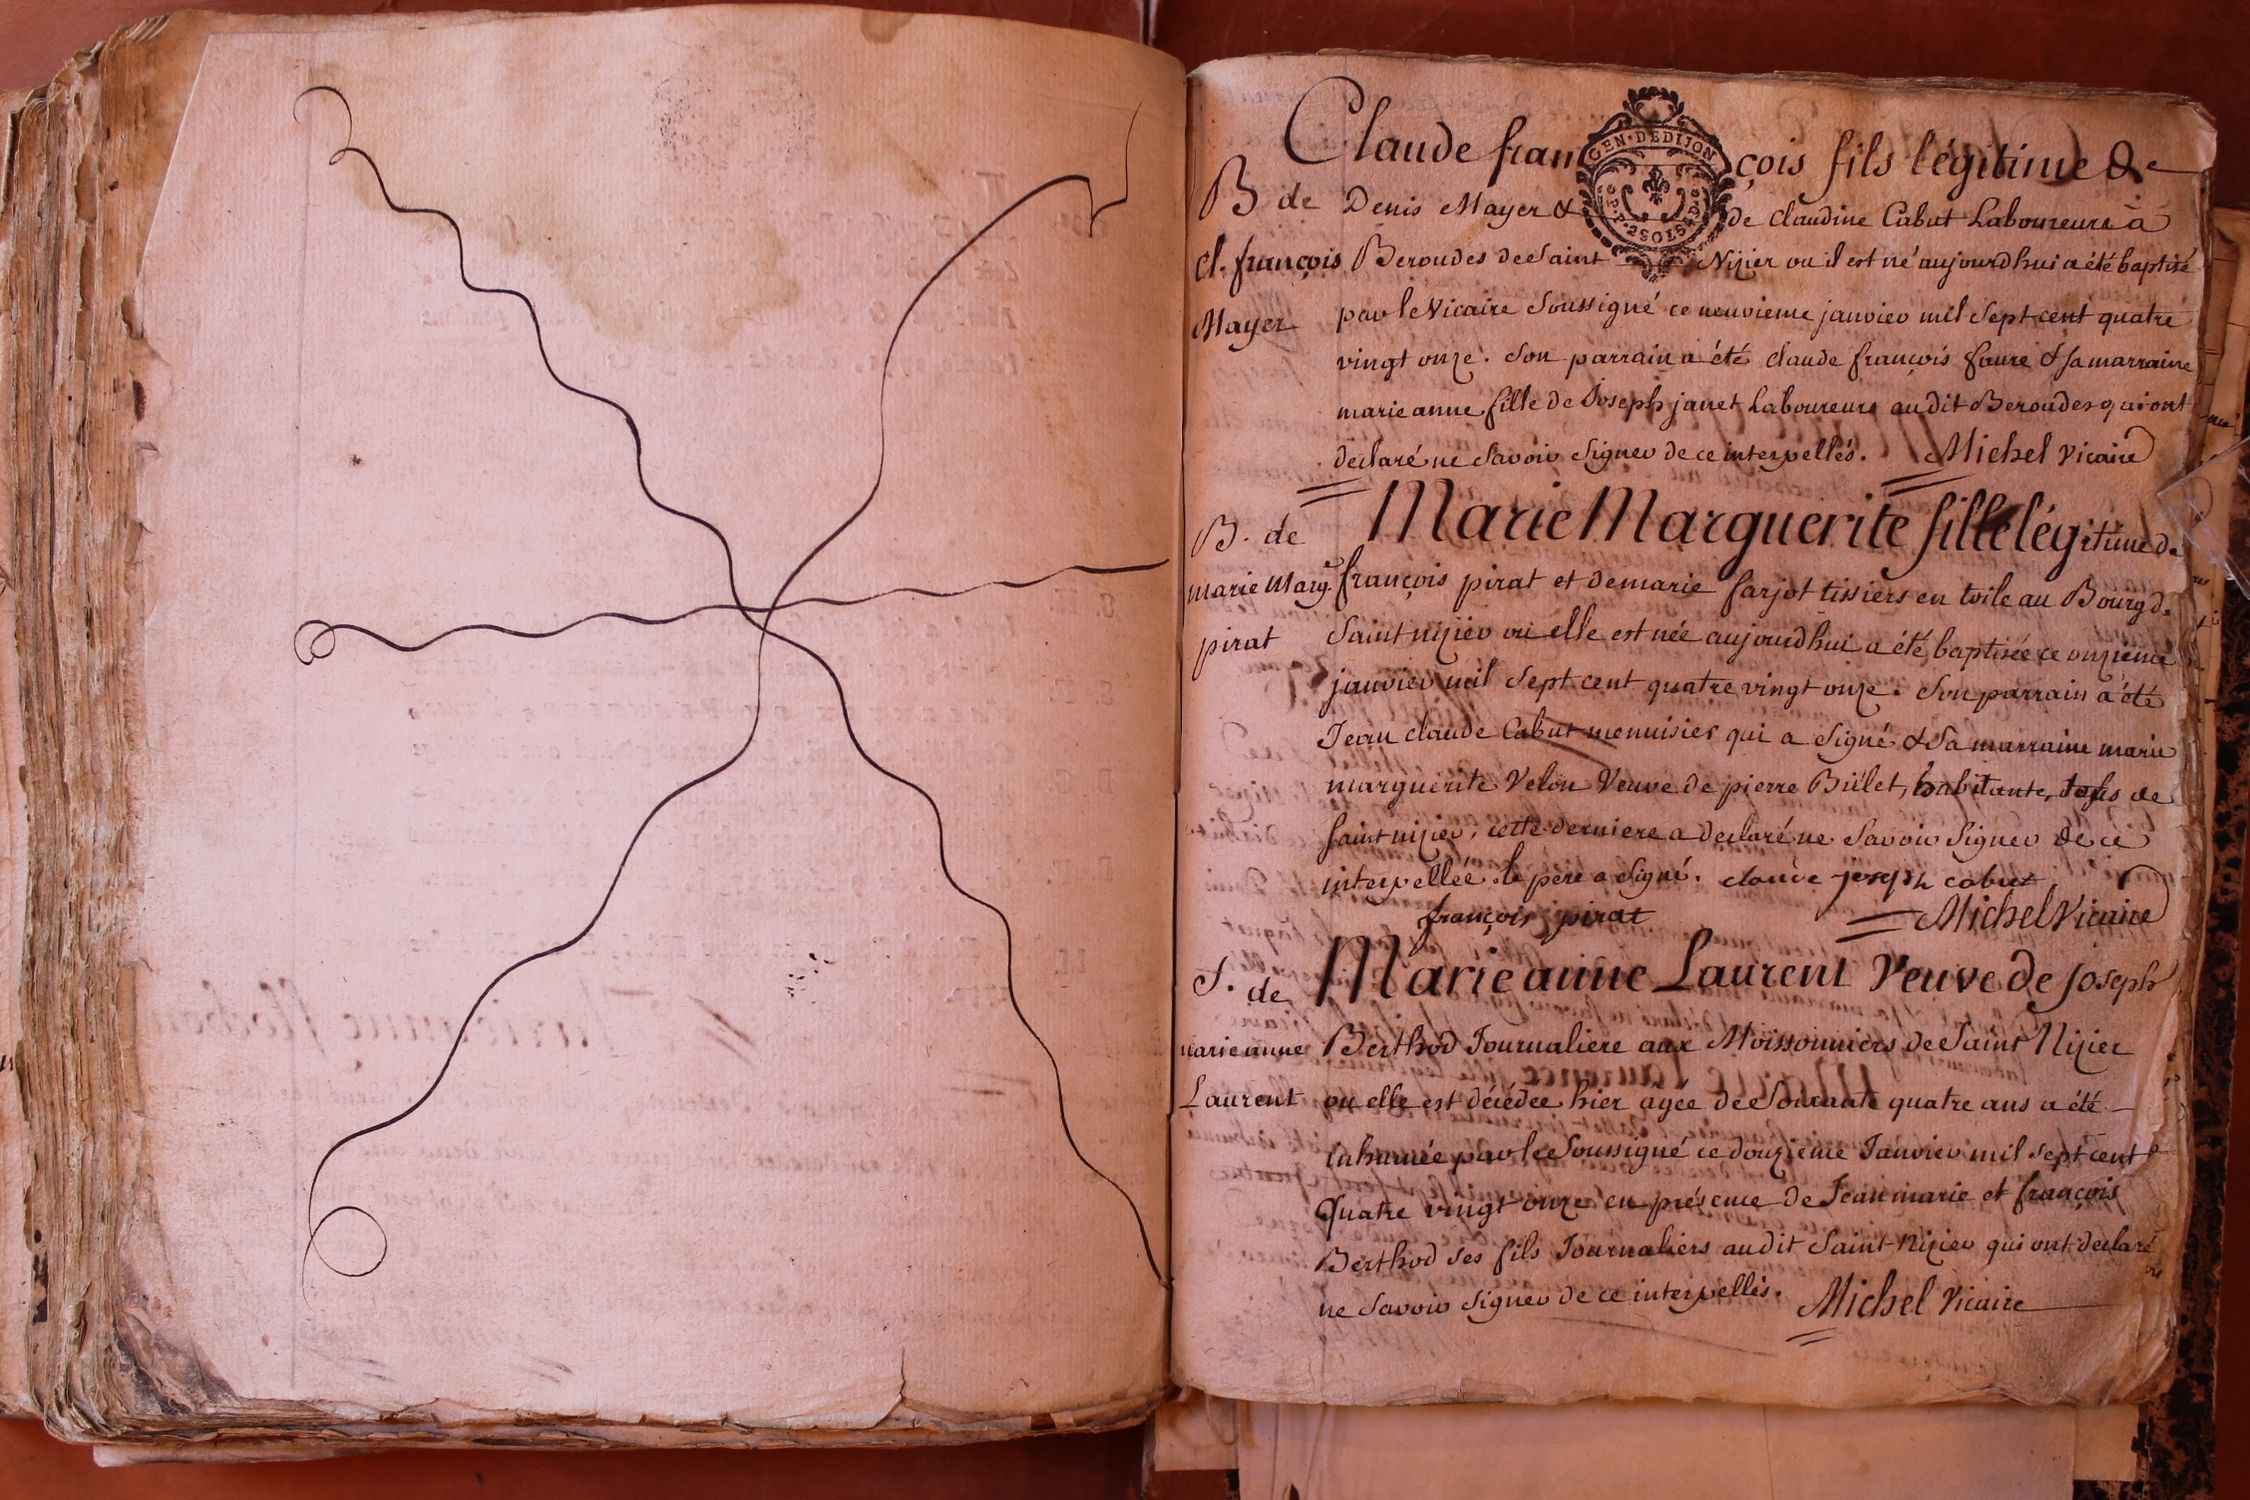 Claude fran çois fils légitime de
GEN·DEDIJON
B de
Denis Mayer & de claudine Cabut Laboureurs à
cl. françois
Beroudes de Saint Nizier ou il est né aujourdhui a été baptisé
Mayer
par le Vicaire Soussigné ce neuvieme janvier mil Sept cent quatre
vingt onze. Son parrain a été claude françois faure & sa marraine
marie anne fille de Joseph janet Laboureurs audit Beroudes qui ont
declaré ne Savoir Signer de ce interpellés. Michel Vicaire
Marie Marguerite fille légitime de
B. de
françois pirat et de marie farjot tissiers en toile au Bourg de
marie Marg.
pirat
Saint nizier ou elle est née aujourdhui a été baptisée ce onzieme
janvier mil Sept cent quatre vingt onze. Son parrain a été
Jean claude Cabut menuisier qui a Signé & Sa marraine marie
marguerite Velon Veuve de pierre Bulet, habitante, tous de
Saint nizier, cette derniere a declaré ne Savoir Signer de ce
interpellée. le pere a Signé. claude joseph cabut
françois pirat Michel Vicaire
Marie anne Laurent Veuve de joseph
S. de
Berthod Journaliere aux Moissonniers de Saint Nizier
marie anne
Laurent
ou elle est décédée hier agée de Soixante quatre ans a été
inhumée par le Soussigné ce douzieme Janvier mil sept cent
quatre vingt onze en présence de Jean marie et françois
Berthod ses fils Journaliers audit Saint Nizier qui ont declaré
ne Savoir Signer de ce interpellés. Michel Vicaire